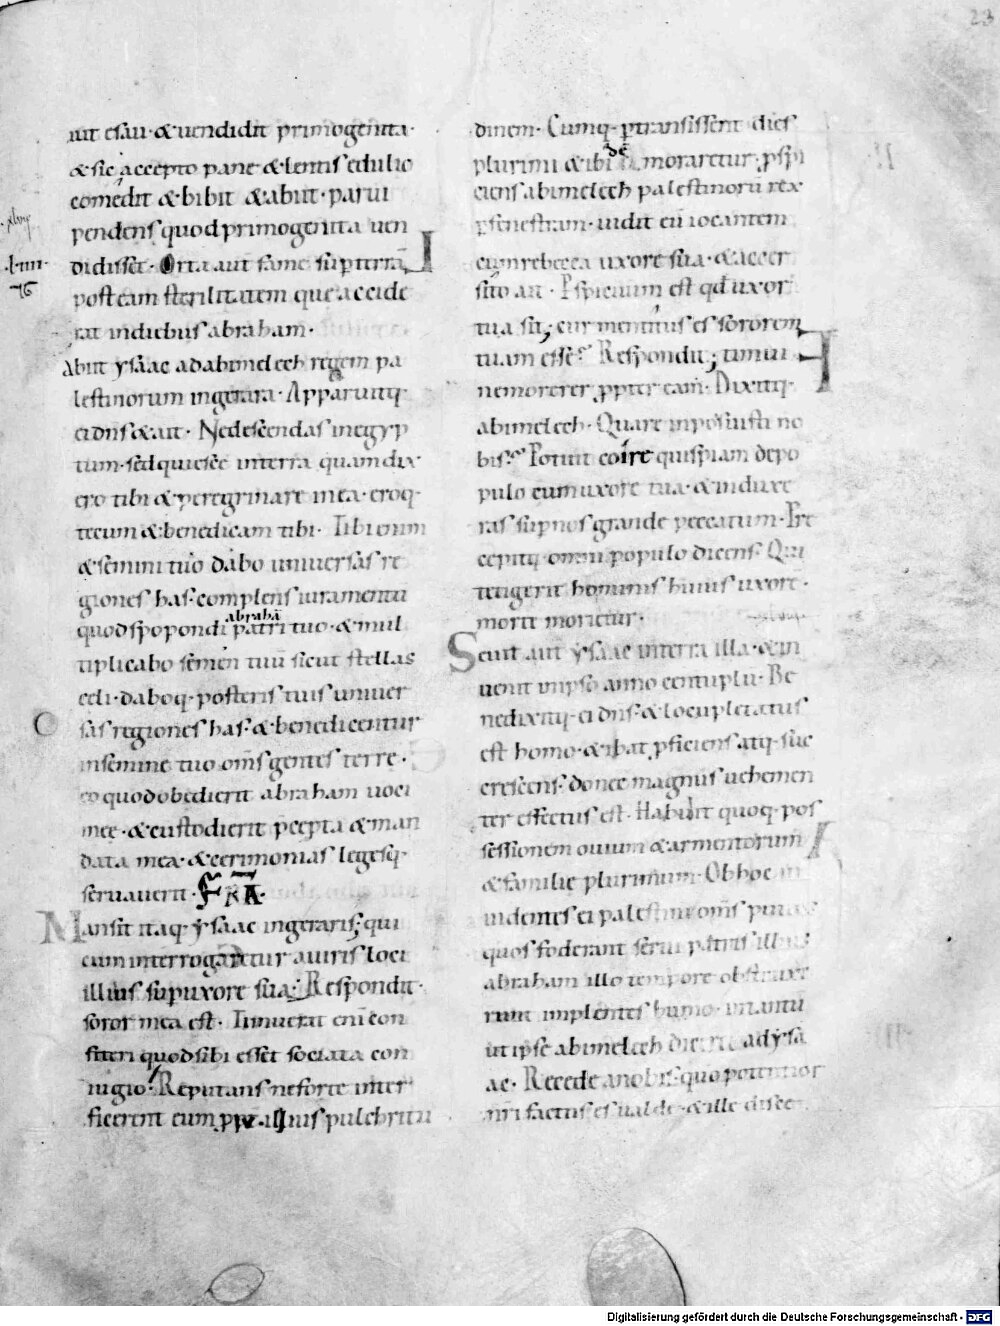 23
uit esau · & uendidit primogenita ·
& sic accepto pane & lentis edulio
comedit & bibit & abiit · parui
pendens quod primogenita uen
didisset · Orta aut fame sup terrā
post eam sterilitatem que accide
rat in diebus abraham ·
Abiit ysaac ad abimelech regem pa
lestinorum in gerara · Apparuitq·
ei dn̄s & ait · Ne descendas in egyp
tum · sed quiesce in terra quam dix
ero tibi & peregrinare in ea · eroq·
tecum & benedicam tibi · Tibi enim
& semini tuo dabo uniuersas re
giones has · complens iuramentū
abrahā
quod spopondi patri tuo · & mul
tiplicabo semen tuū sicut stellas
celi · daboq· posteris tuis uniuer
sas regiones has · & benedicentur
in semine tuo om̄s gentes terre ·
eo quod obedierit abraham uoci
mee · & custodierit p̄cepta & man
data mea · & cerimonias legesq·
seruauerit · FR̄A ·
Mansit itaq· ysaac in geraris; qui
cum interrogaretur a uiris loci
illius sup uxore sua · Respondit ·
soror mea est · Timuerat eni con
fiteri quod sibi esset sociata con
iugio · Reputans ne forte inter
ficerent eum ppt illius pulchritu
dinem · Cumq· ptransissent dies
plurimi & ibi demoraretur · pspi
ciens abimelech palestinorū rex
p fenestram · uidit eū iocantem
cum rebecca uxore sua · & accer
sito ait · Pspicuum est qd uxor
tua sit; cur mentitus es sororem
tuam esse? Respondit; timui
ne morerer ppter eam · Dixitq·
abimelech · Quare inposuisti no
bis? Potuit coire quispiam de po
pulo cum uxore tua · & induxe
ras sup nos grande peccatum · Pre
cepitq· omni populo dicens · Qui
tetigerit hominis huius uxore ·
morte morietur ·
Seuit aut ysaac in terra illa · & in
uenit in ipso anno centuplū · Be
nedixitq· ei dn̄s · & locupletatus
est homo · & ibat pficiens atq· suc
crescens · donec magnus uehemen
ter effectus est · Habuit quoq· pos
sessionem ouium & armentorum
& familie plurimum · Ob hoc in
uidentes ei palestini om̄s puteos
quos foderant serui patris illius
abraham illo tempore obstruxe
runt implentes humo · intantū
ut ipse abimelech diceret ad ysa
ac · Recede a nobis · quo potentior
nr̄i factus es ualde · & ille disce
Digitalisierung gefördert durch die Deutsche Forschungsgemeinschaft - DFG